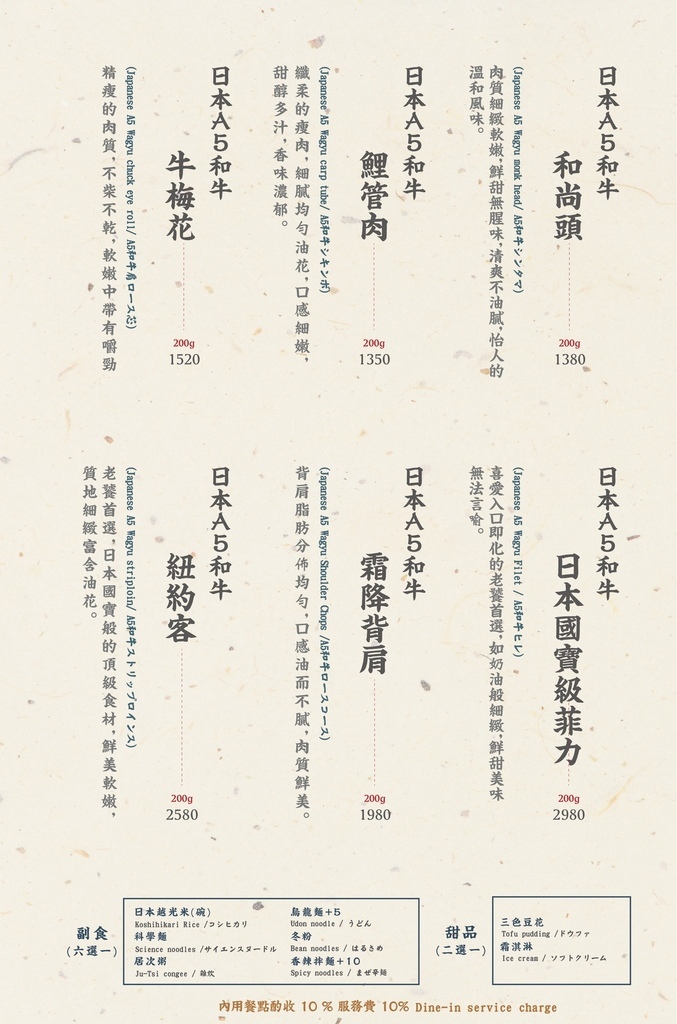 日本A5和牛
和尚頭
200g
1380
(Japanese A5 Wagyu monk head/ A5和牛シンタマ)
肉質細緻軟嫩，鮮甜無腥味，清爽不油膩，怡人的
溫和風味。
日本A5和牛
鯉管肉
200g
1350
(Japanese A5 Wagyu carp tube/ A5和牛シキンボ)
纖柔的瘦肉，細膩均勻油花，口感細嫩，
甜醇多汁，香味濃郁。
日本A5和牛
牛梅花
200g
1520
(Japanese A5 Wagyu chuck eye roll/ A5和牛肩ロース芯)
精瘦的肉質，不柴不乾，軟嫩中帶有嚼勁
日本A5和牛
日本國寶級菲力
200g
2980
(Japanese A5 Wagyu Filet / A5和牛ヒレ)
喜愛入口即化的老饕首選，如奶油般細緻，鮮甜美味
無法言喻。
日本A5和牛
霜降背肩
200g
1980
(Japanese A5 Wagyu Shoulder Chops /A5和牛ロースコース)
背肩脂肪分佈均勻，口感油而不膩，肉質鮮美。
日本A5和牛
紐約客
200g
2580
(Japanese A5 Wagyu striploin/ A5和牛ストリップロインス)
老饕首選，日本國寶般的頂級食材，鮮美軟嫩，
質地細緻富含油花。
副食
(六選一)
日本越光米(碗)
Koshihikari Rice /コシヒカリ
科學麵
Science noodles /サイエンスヌードル
居次粥
Ju-Tsi congee / 雑炊
烏龍麵+5
Udon noodle / うどん
冬粉
Bean noodles / はるさめ
香辣拌麵+10
Spicy noodles / まぜ辛麺
甜品
(二選一)
三色豆花
Tofu pudding /ドウファ
霜淇淋
Ice cream / ソフトクリーム
內用餐點酌收 10 % 服務費 10% Dine-in service charge